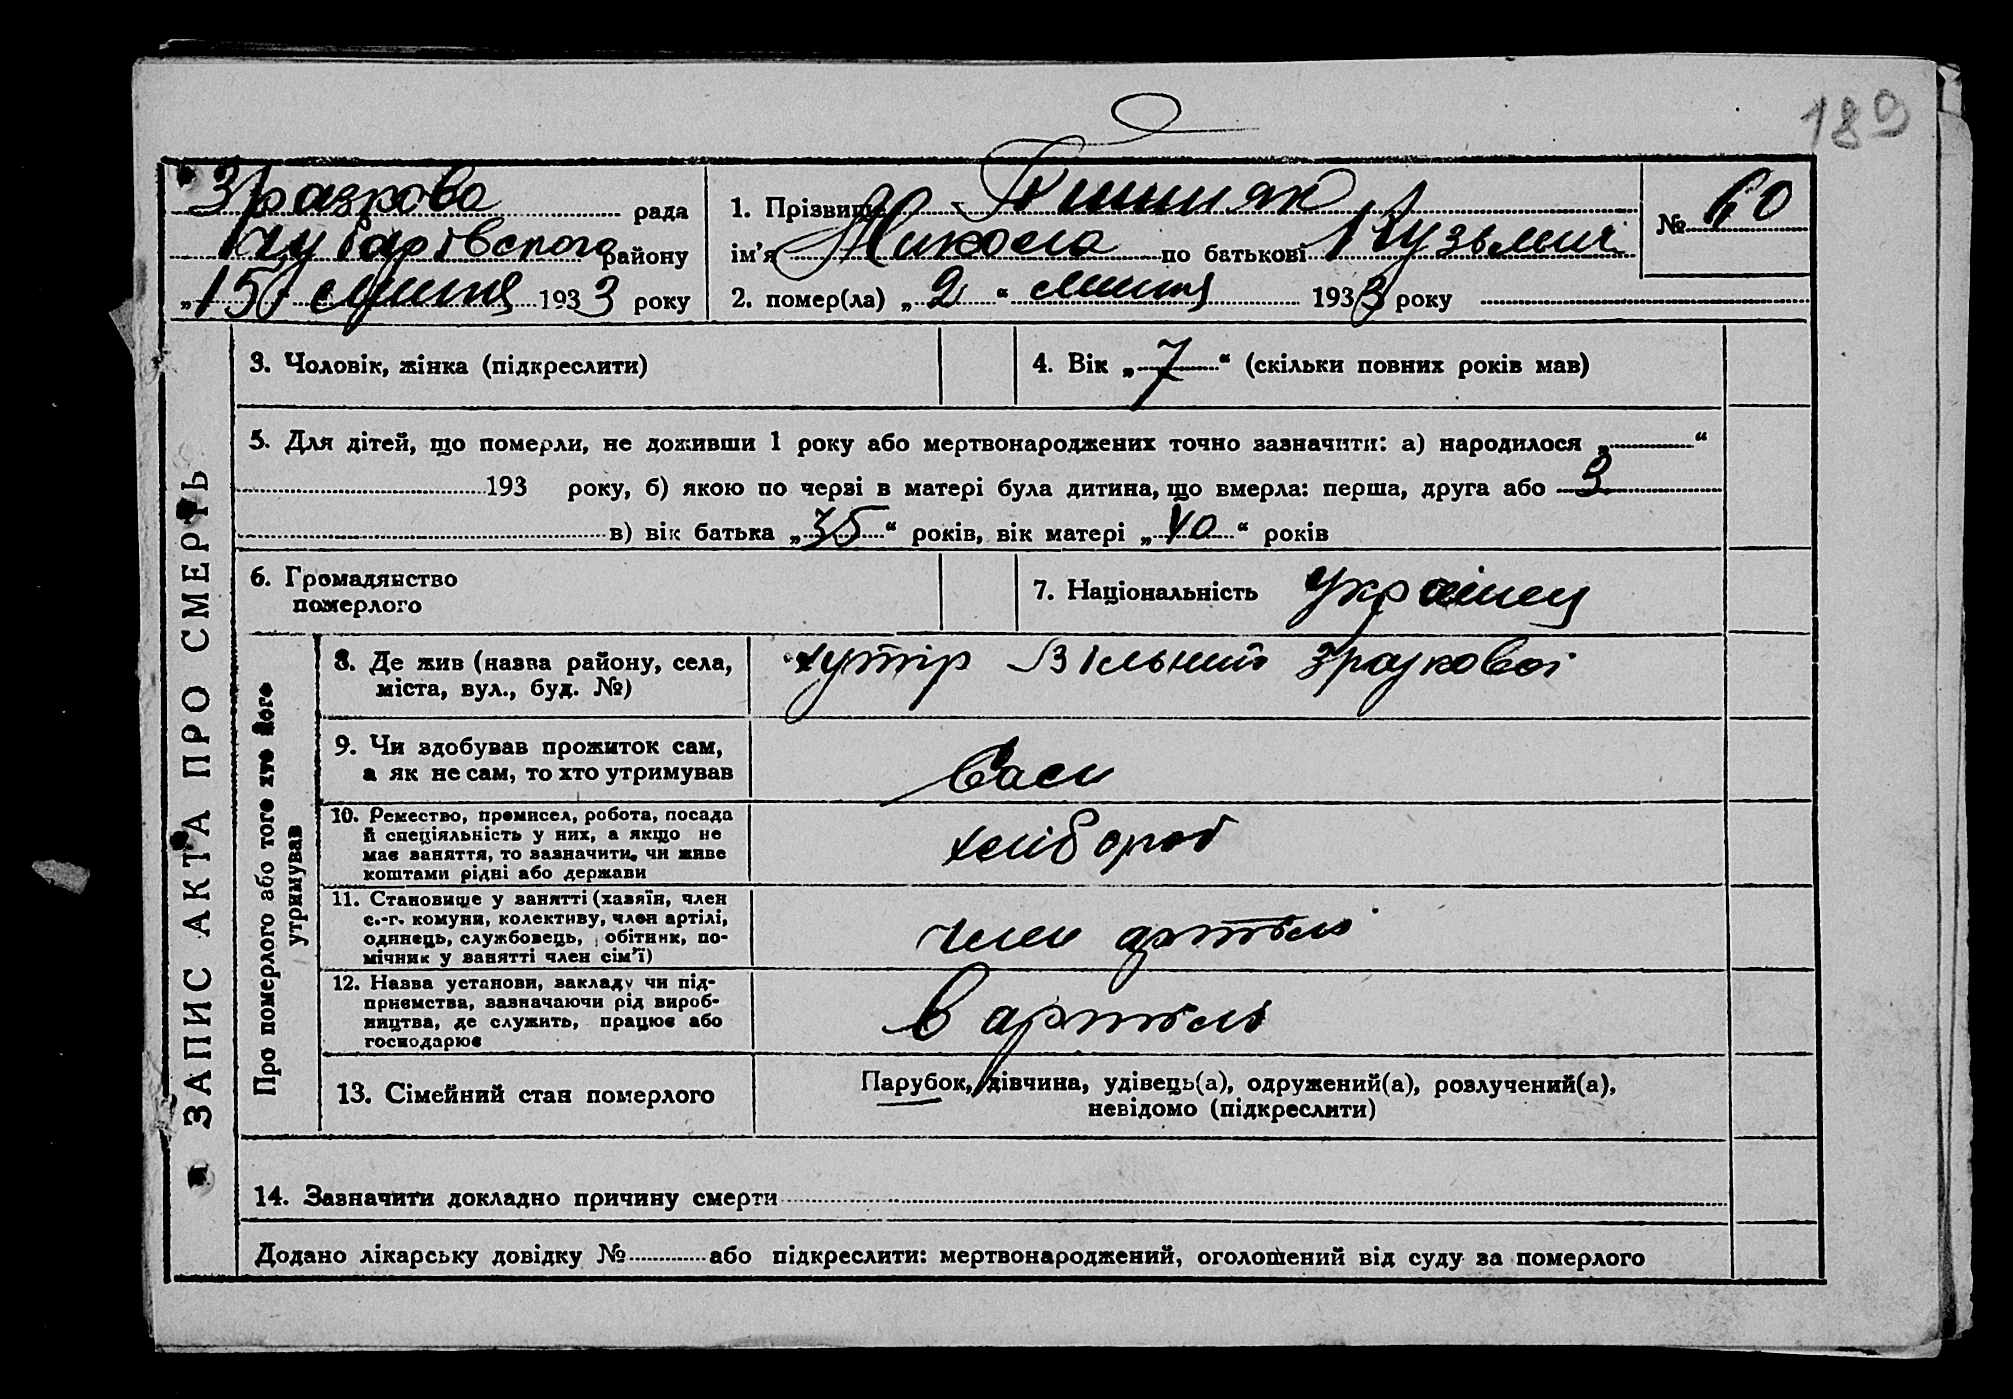 189
Зразкова рада
району
„15“ липня 1933 року
1. Прізвище
ім’я Микола по батькові Кузьмич
2. помер(ла) „2“ липня 1933 року
№ 60
ЗАПИС АКТА ПРО СМЕРТЬ
3. Чоловік, жінка (підкреслити)
4. Вік „7“ (скільки повних років мав)
5. Для дітей, що померли, не доживши 1 року або мертвонароджених точно зазначити: а) народилося „ “
193 року, б) якою по черзі в матері була дитина, що вмерла: перша, друга або 3
в) вік батька „35“ років, вік матері „40“ років
6. Громадянство
померлого
7. Національність українец
Про померлого або того хто його
утримував
8. Де жив (назва району, села,
міста, вул., буд. №)
хутір Вільний Зразкової
9. Чи здобував прожиток сам,
а як не сам, то хто утримував
10. Ремество, промисел, робота, посада
й спеціяльність у них, а якщо не
має заняття, то зазначити, чи живе
коштами рідні або держави
хлібороб
11. Становище у занятті (хазяїн, член
с.-г. комуни, колективу, член артілі,
одинець, службовець, обітник, по-
мічник у занятті член сім’ї)
член артіль
12. Назва установи, закладу чи під-
приємства, зазначаючи рід вироб-
ництва, де служить, працює або
господарює
в артіль
13. Сімейний стан померлого
Парубок, дівчина, удівець(а), одружений(а), розлучений(а),
невідомо (підкреслити)
14. Зазначити докладно причину смерти
Додано лікарську довідку № або підкреслити: мертвонароджений, оголошений від суду за померлого